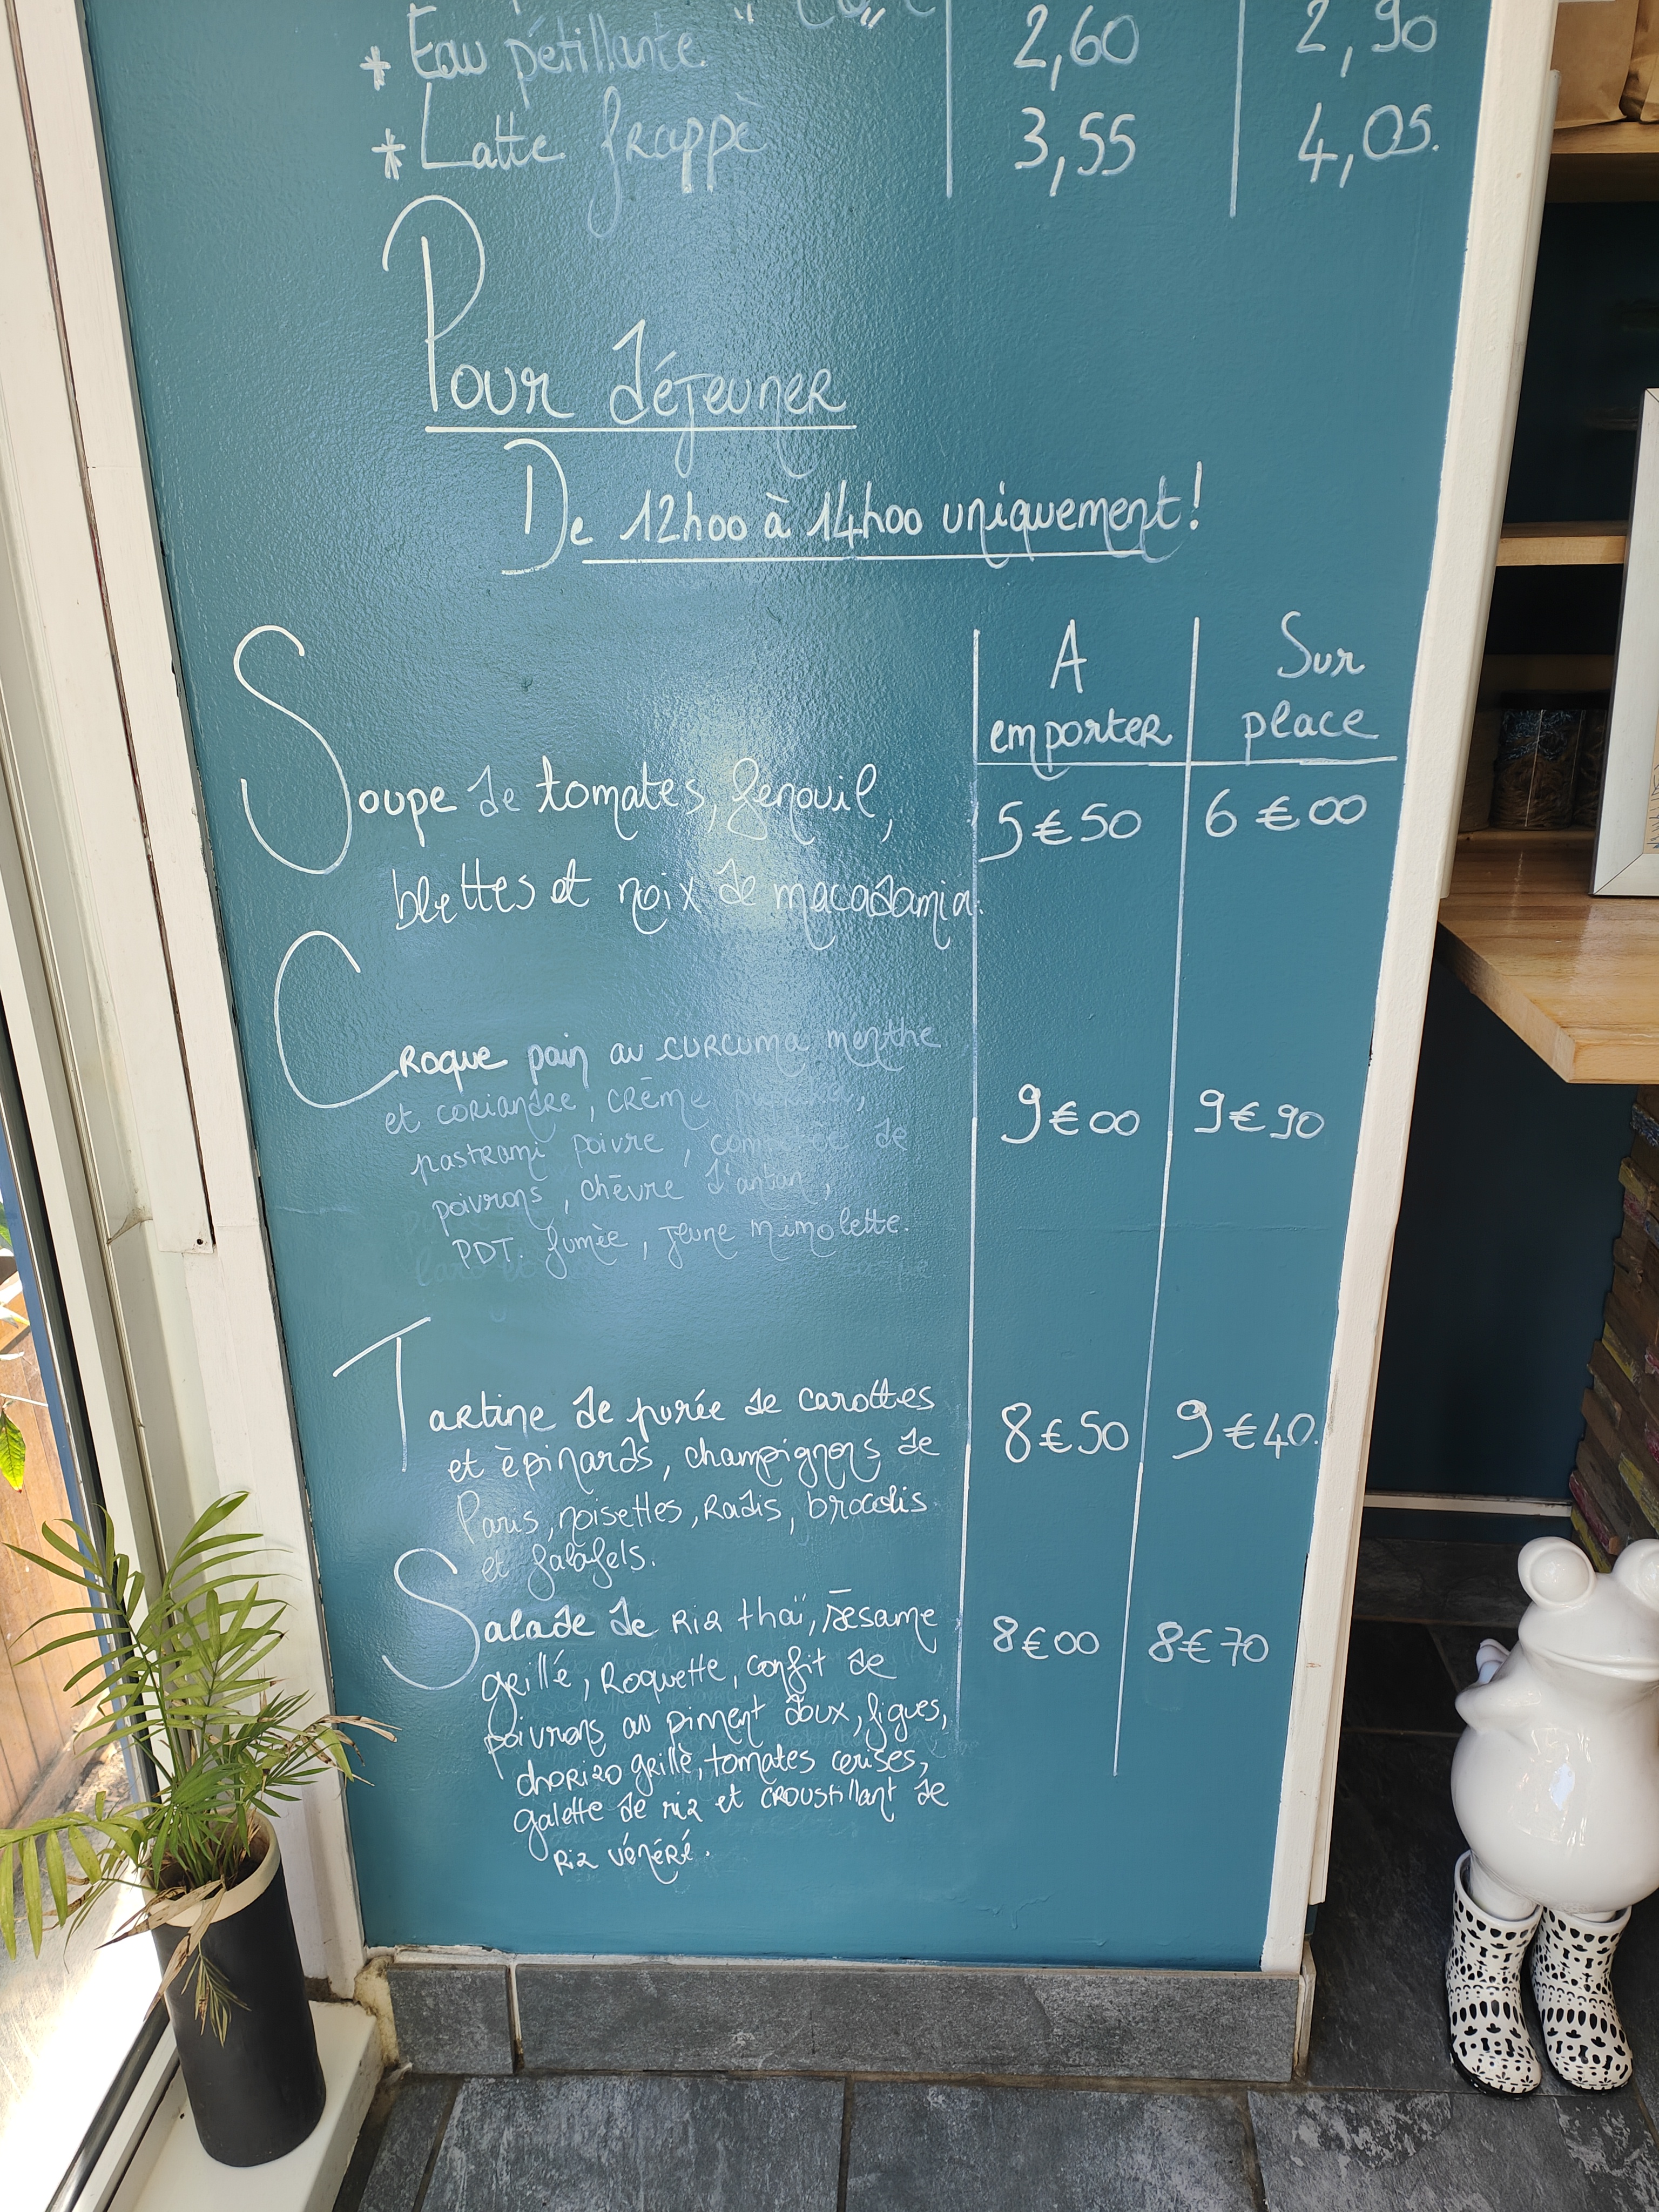 * Eau pétillante 2,60 2,90
* Latte frappè 3,55 4,05.
Pour déjeuner
De 12h00 à 14h00 uniquement!
A Sur
emporter place
Soupe de tomates, fenouil, 5€50 6€00
blettes et noix de macadamia.
Croque pain au curcuma menthe
et coriandre, crème
pastrami poivre, de 9€00 9€90
poivrons, chèvre d'antan,
PDT. fumèe, jeune mimolette.
Tartine de purée de carottes 8€50 9€40.
et èpinards, champignons de
Paris, noisettes, radis, brocolis
et falafels.
Salade de riz thaï, sesame 8€00 8€70
grillé, roquette, confit de
poivrons au piment doux, figues,
chorizo grillè, tomates cerises,
galette de riz et croustillant de
riz vénéré.